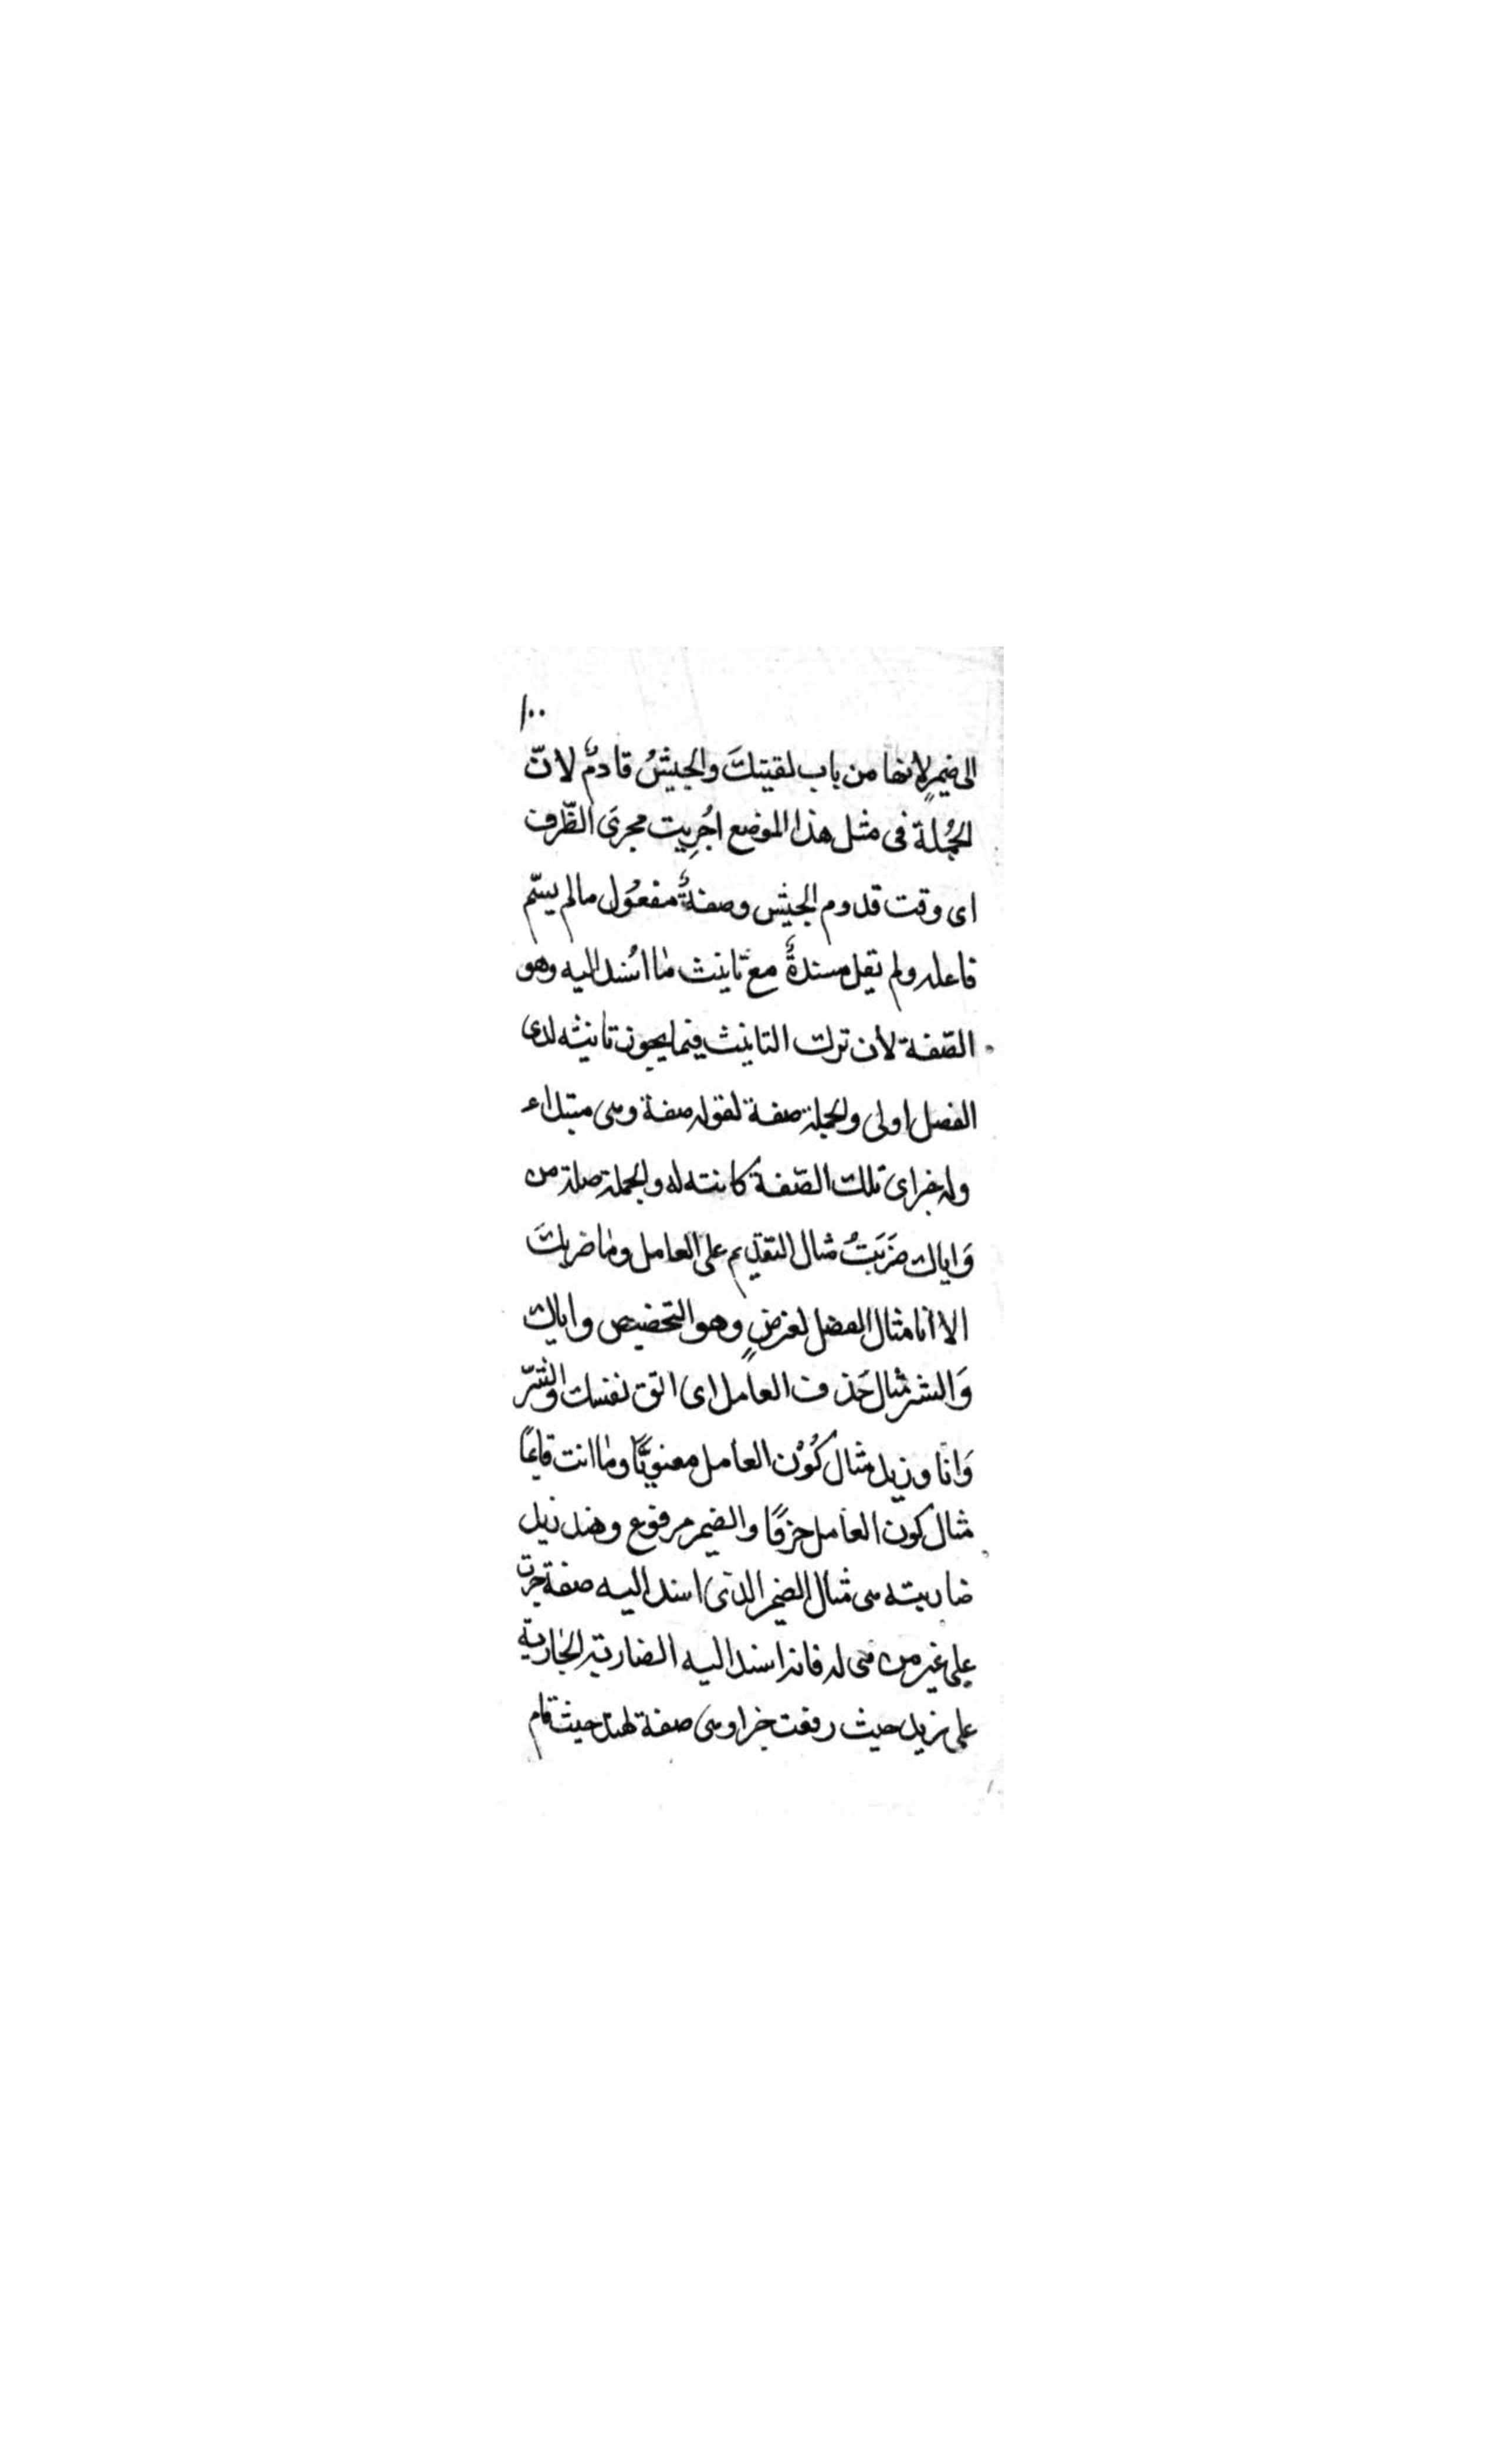 ١٠٠
الى ضميرٍ لانها من باب لقيتكَ والجيشُ قادمٌ لانّ
الجُملة فى مثل هذا الموضع اجُرِيت مجرَى الظّرف
اى وقت قدوم الجيش وصفةٌ مفعُول مالم يسّم
فاعله ولم يقل مسندةٌ مع تانيث ما اسُند اليه وهو
الصّفة لان ترك التانيث فيما يجوز تانيثه لدى
الفصل اولى والجملة صفة لقوله صفة وهى مبتداء
وله خبر اى تلك الصّفة كاينته له والجملة صلة من
وَاياك ضَرَبَتُ مثال التقديم على العامل وما ضربكَ
الا انا مثال الفصل لغرضٍ وهو التخصيص واياك
وَالشر مثال حَذف العامل اى اتق نفسك والشّرّ
وَانا وزيد مثال كُوْن العامل معنويًّا وما انت قايمًا
مثال كون العامل حرفًا والضمير مرفوع وهند زيد
ضاربته هى مثال الضمير الذى اسند اليه صفة جرت
على غير من هى له فانه اسند اليه الضاربة الجارية
على زيد حيث رفعت خبرا وهى صفة لهند حيث قام